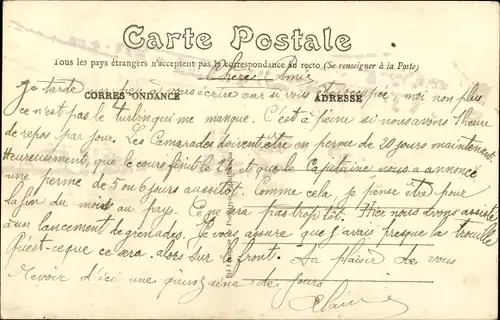 Carte Postale
Tous les pays étrangers n'acceptent pas la correspondance au recto (Se renseigner à la Poste)
Chère Amie
CORRESPONDANCE
ADRESSE
Je tarde écrire car si vous êtes occupée, moi non plus,
ce n'est pas le turbin qui me manque. C'est à peine si nous avons 1 heure
de repos par jour. Les Camarades doivent être en perme de 20 jours maintenant
Heureusement, que le cours finit le 24 et que le Capitaine nous a annoncé
une perme de 5 ou 6 jours aussitôt. Comme cela, je pense être pour
la fin du mois au pays. Ce ne sera pas trop tôt. Hier nous avons assisté
à un lancement de grenades. Je vous assure que j'avais presque la trouille
Qu'est-ce que ce sera alors sur le front. Au plaisir de vous
revoir d'ici une quinzaine de jours